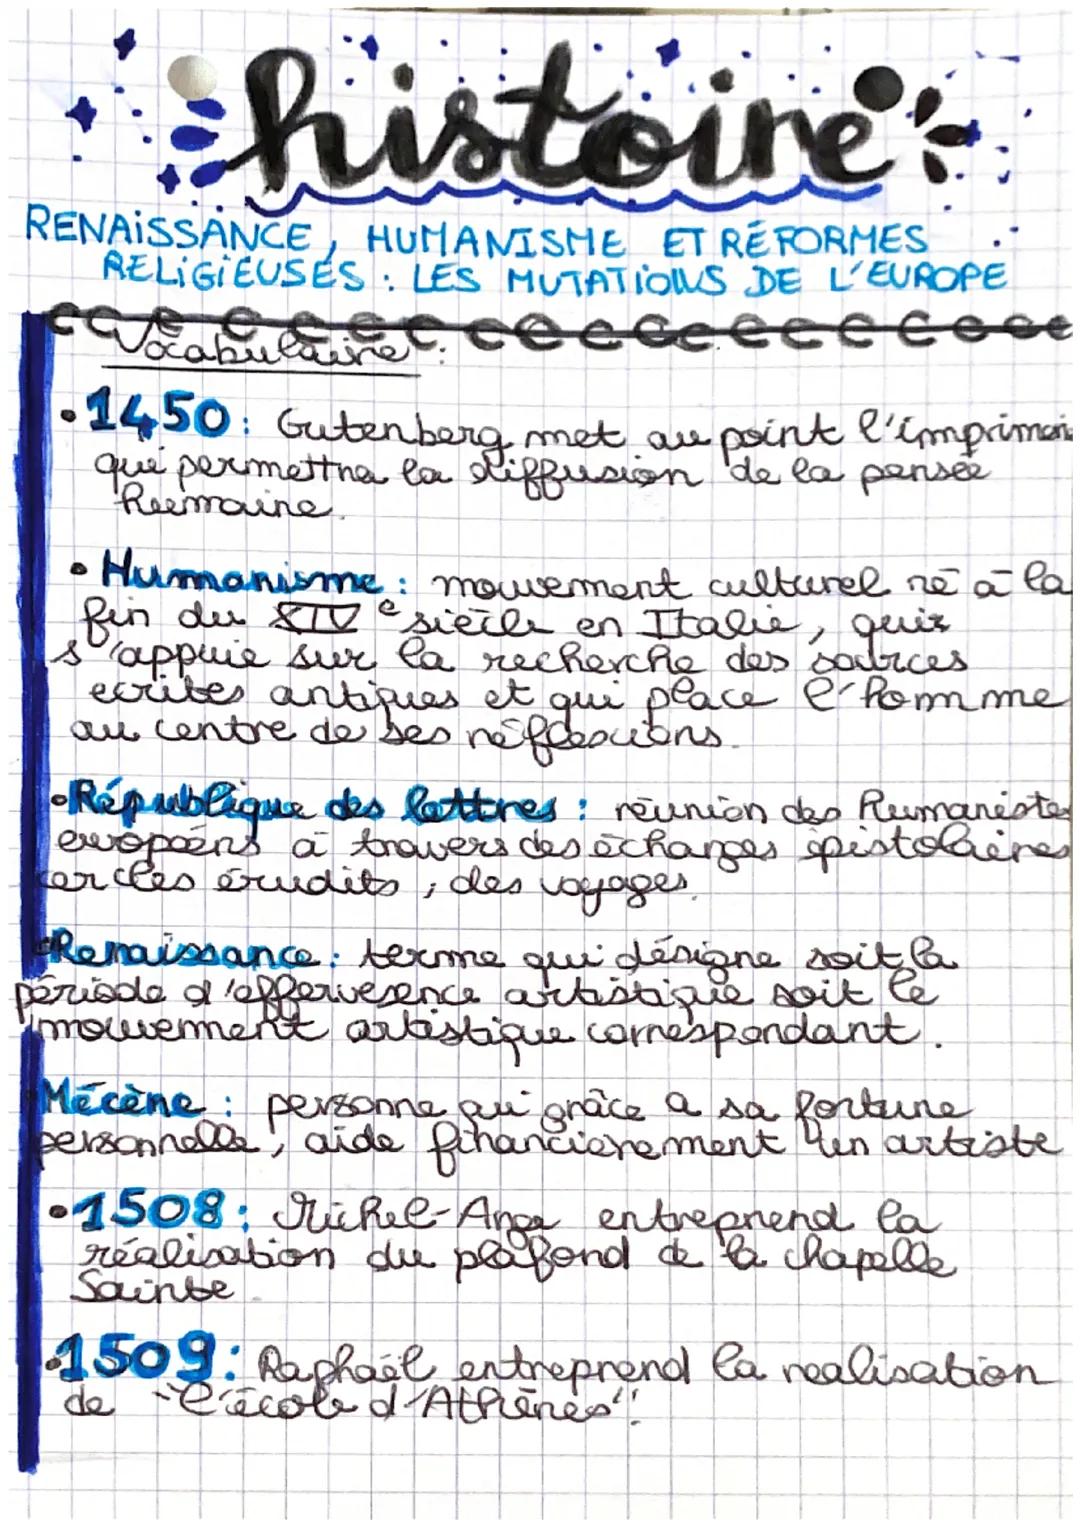 histoire
RENAISSANCE, HUMANISME ET RÉFORMES
RELIGIEUSES : LES MUTATIONS DE L'EUROPE
Vocabulaire :
• 1450 : Gutenberg met au point l'imprimeri
qui permettra la diffusion de la pensée
humaine.
• Humanisme : mouvement culturel né à la
fin du XIVe siècle en Italie, quis
s'appuie sur la recherche des sources
ecrites antiques et qui place l'homme
au centre de ses réflexions.
• République des lettres : réunion des humanistes
européens à travers des échanges épistolaires
cercles érudits, des voyages.
Renaissance : terme qui désigne soit la
période d'effervesence artistique soit le
mouvement artistique correspondant.
Mécène : personne qui grâce a sa fortune
personnelle, aide financierement un artiste
• 1508 : Michel-Ange entreprend la
réalisation du plafond de la chapelle
Sainte.
• 1509 : Raphaël entreprend la realisation
de "l'école d'Athènes".